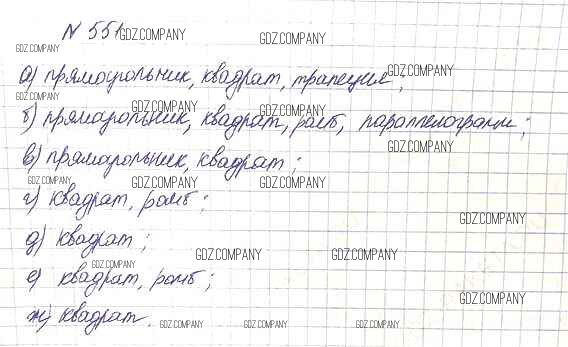 N 551
GDZ.COMPANY GDZ.COMPANY
GDZ.COMPANY
а) прямоугольник, квадрат, трапеция;
GDZ.COMPANY
GDZ.COMPANY
GDZ.COMPANY GDZ.COMPANY
б) прямоугольник, квадрат, ромб, параллелограмм;
GDZ.COMPANY
в) прямоугольник, квадрат;
GDZ.COMPANY GDZ.COMPANY GDZ.COMPANY
г) квадрат, ромб;
GDZ.COMPANY
д) квадрат;
GDZ.COMPANY GDZ.COMPANY
GDZ.COMPANY
е) квадрат, ромб;
GDZ.COMPANY
ж) квадрат.
GDZ.COMPANY GDZ.COMPANY GDZ.COMPANY